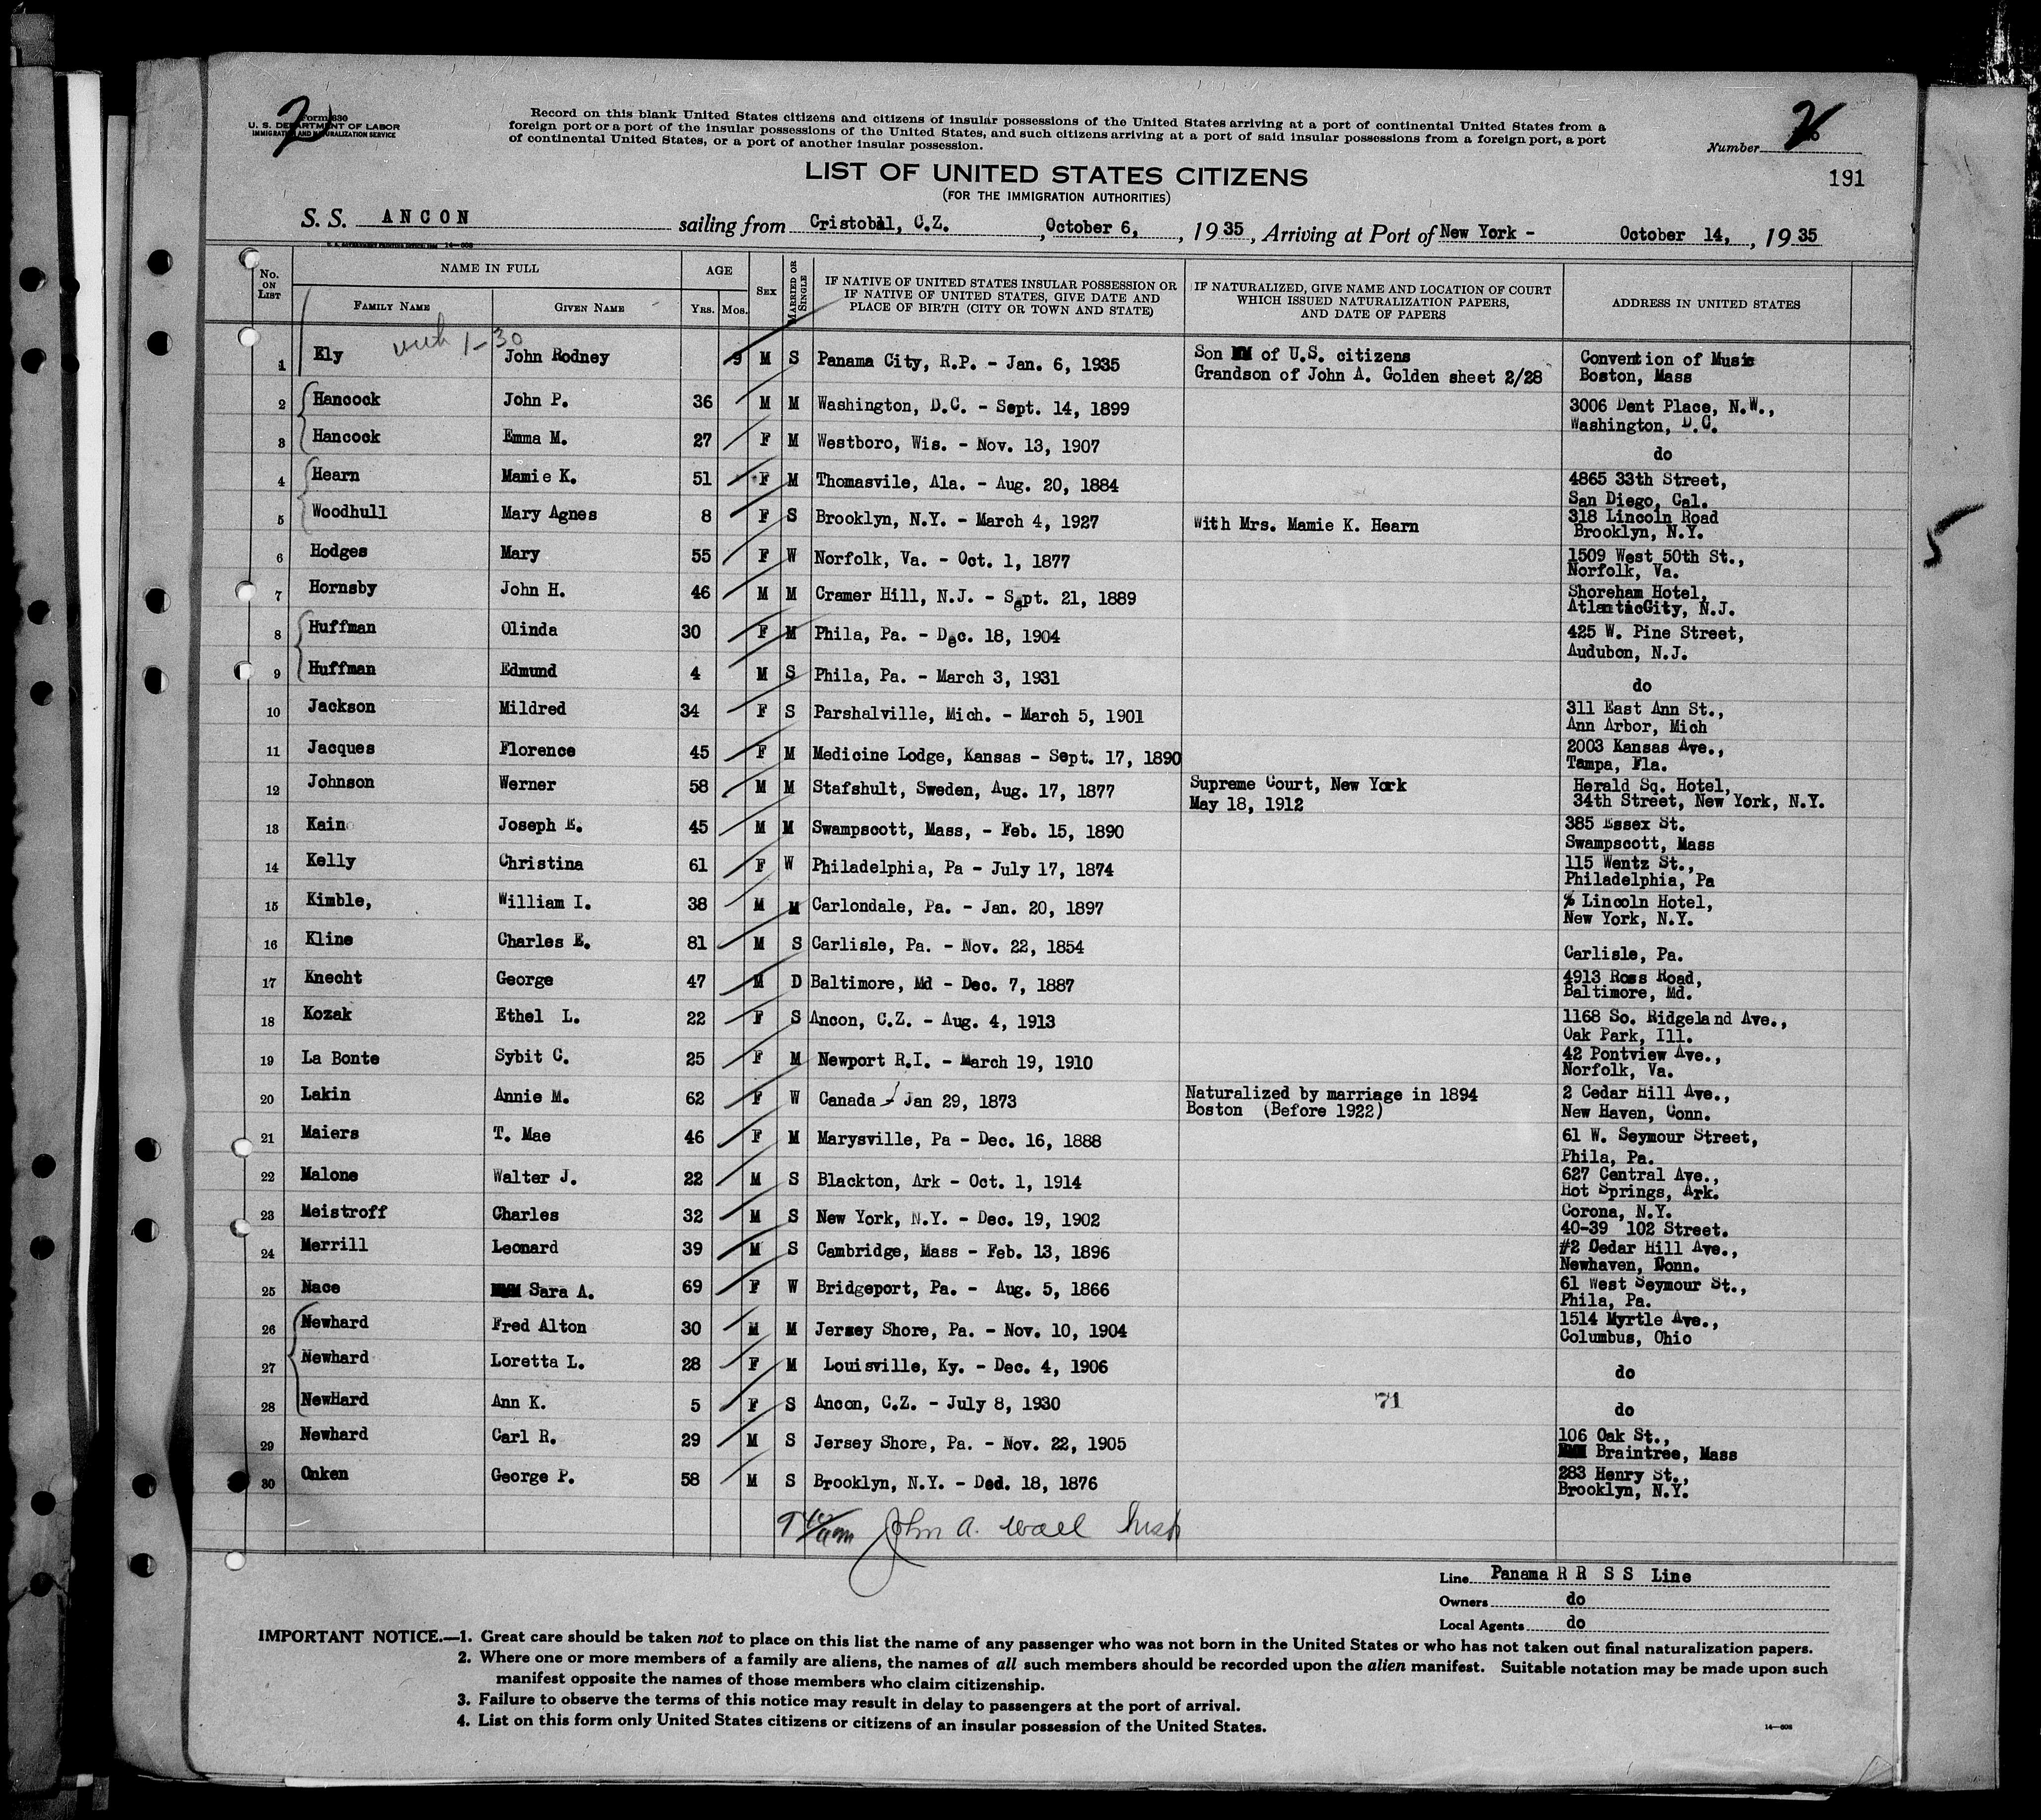 2
2
Form 630
U. S. DEPARTMENT OF LABOR
IMMIGRATION AND NATURALIZATION SERVICE
Record on this blank United States citizens and citizens of insular possessions of the United States arriving at a port of continental United States from a
foreign port or a port of the insular possessions of the United States, and such citizens arriving at a port of said insular possessions from a foreign port, a port
of continental United States, or a port of another insular possession.
Number
LIST OF UNITED STATES CITIZENS
191
(FOR THE IMMIGRATION AUTHORITIES)
S. S. ANCON sailing from Cristobal, C.Z. , October 6, , 1935, Arriving at Port of New York - October 14, , 1935
No. ON LIST NAME IN FULL AGE SEX MARRIED OR SINGLE IF NATIVE OF UNITED STATES INSULAR POSSESSION OR IF NATIVE OF UNITED STATES, GIVE DATE AND PLACE OF BIRTH (CITY OR TOWN AND STATE) IF NATURALIZED, GIVE NAME AND LOCATION OF COURT WHICH ISSUED NATURALIZATION PAPERS, AND DATE OF PAPERS ADDRESS IN UNITED STATES
FAMILY NAME GIVEN NAME YRS. MOS.
1-30
1 Ely John Rodney 9 M S Panama City, R.P. - Jan. 6, 1935 Son of U.S. citizens Convention of Music
Grandson of John A. Golden sheet 2/28 Boston, Mass
2 Hancock John P. 36 M M Washington, D.C. - Sept. 14, 1899 3006 Dent Place, N.W.,
Washington, D.C.
3 Hancock Emma M. 27 F M Westboro, Wis. - Nov. 13, 1907 do
4 Hearn Mamie K. 51 F M Thomasvile, Ala. - Aug. 20, 1884 4865 33th Street,
San Diego, Cal.
5 Woodhull Mary Agnes 8 F S Brooklyn, N.Y. - March 4, 1927 With Mrs. Mamie K. Hearn 318 Lincoln Road
Brooklyn, N.Y.
6 Hodges Mary 55 F W Norfolk, Va. - Oct. 1, 1877 1509 West 50th St.,
Norfolk, Va.
7 Hornsby John H. 46 M M Cramer Hill, N.J. - Sept. 21, 1889 Shoreham Hotel,
AtlanticCity, N.J.
8 Huffman Olinda 30 F M Phila, Pa. - Dec. 18, 1904 425 W. Pine Street,
Audubon, N.J.
9 Huffman Edmund 4 M S Phila, Pa. - March 3, 1931 do
10 Jackson Mildred 34 F S Parshalville, Mich. - March 5, 1901 311 East Ann St.,
Ann Arbor, Mich
11 Jacques Florence 45 F M Medicine Lodge, Kansas - Sept. 17, 1890 2003 Kansas Ave.,
Tampa, Fla.
12 Johnson Werner 58 M M Stafshult, Sweden, Aug. 17, 1877 Supreme Court, New York Herald Sq. Hotel,
May 18, 1912 34th Street, New York, N.Y.
13 Kain Joseph E. 45 M M Swampscott, Mass, - Feb. 15, 1890 385 Essex St.
Swampscott, Mass
14 Kelly Christina 61 F W Philadelphia, Pa - July 17, 1874 115 Wentz St.,
Philadelphia, Pa
15 Kimble, William I. 38 M M Carlondale, Pa. - Jan. 20, 1897 % Lincoln Hotel,
New York, N.Y.
16 Kline Charles E. 81 M S Carlisle, Pa. - Nov. 22, 1854 Carlisle, Pa.
17 Knecht George 47 M D Baltimore, Md - Dec. 7, 1887 4913 Ross Road,
Baltimore, Md.
18 Kozak Ethel L. 22 F S Ancon, C.Z. - Aug. 4, 1913 1168 So. Ridgeland Ave.,
Oak Park, Ill.
19 La Bonte Sybit C. 25 F M Newport R.I. - March 19, 1910 42 Pontview Ave.,
Norfolk, Va.
20 Lakin Annie M. 62 F W Canada - Jan 29, 1873 Naturalized by marriage in 1894 2 Cedar Hill Ave.,
Boston (Before 1922) New Haven, Conn.
21 Maiers T. Mae 46 F M Marysville, Pa - Dec. 16, 1888 61 W. Seymour Street,
Phila, Pa.
22 Malone Walter J. 22 M S Blackton, Ark - Oct. 1, 1914 627 Central Ave.,
Hot Springs, Ark.
23 Meistroff Charles 32 M S New York, N.Y. - Dec. 19, 1902 Corona, N.Y.
40-39 102 Street.
24 Merrill Leonard 39 M S Cambridge, Mass - Feb. 13, 1896 #2 Cedar Hill Ave.,
Newhaven, Conn.
25 Nace Sara A. 69 F W Bridgeport, Pa. - Aug. 5, 1866 61 West Seymour St.,
Phila, Pa.
26 Newhard Fred Alton 30 M M Jersey Shore, Pa. - Nov. 10, 1904 1514 Myrtle Ave.,
Columbus, Ohio
27 Newhard Loretta L. 28 F M Louisville, Ky. - Dec. 4, 1906 do
28 NewHard Ann K. 5 F S Ancon, C.Z. - July 8, 1930 71 do
29 Newhard Carl R. 29 M S Jersey Shore, Pa. - Nov. 22, 1905 106 Oak St.,
Braintree, Mass
30 Onken George P. 58 M S Brooklyn, N.Y. - Ded. 18, 1876 283 Henry St.,
Brooklyn, N.Y.
John A. Wall Insp
5
Line Panama R R S S Line
Owners do
Local Agents do
IMPORTANT NOTICE.—1. Great care should be taken not to place on this list the name of any passenger who was not born in the United States or who has not taken out final naturalization papers.
2. Where one or more members of a family are aliens, the names of all such members should be recorded upon the alien manifest. Suitable notation may be made upon such
manifest opposite the names of those members who claim citizenship.
3. Failure to observe the terms of this notice may result in delay to passengers at the port of arrival.
4. List on this form only United States citizens or citizens of an insular possession of the United States.
14—608